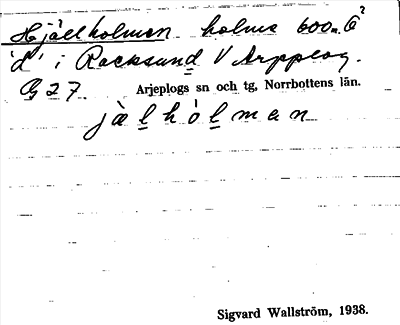 Hjälholmen holme 600 m Ö
"d" i Racksund V Arpplog.
G 27. Arjeplogs sn och tg, Norrbottens län.
jälhólman
Sigvard Wallström, 1938.